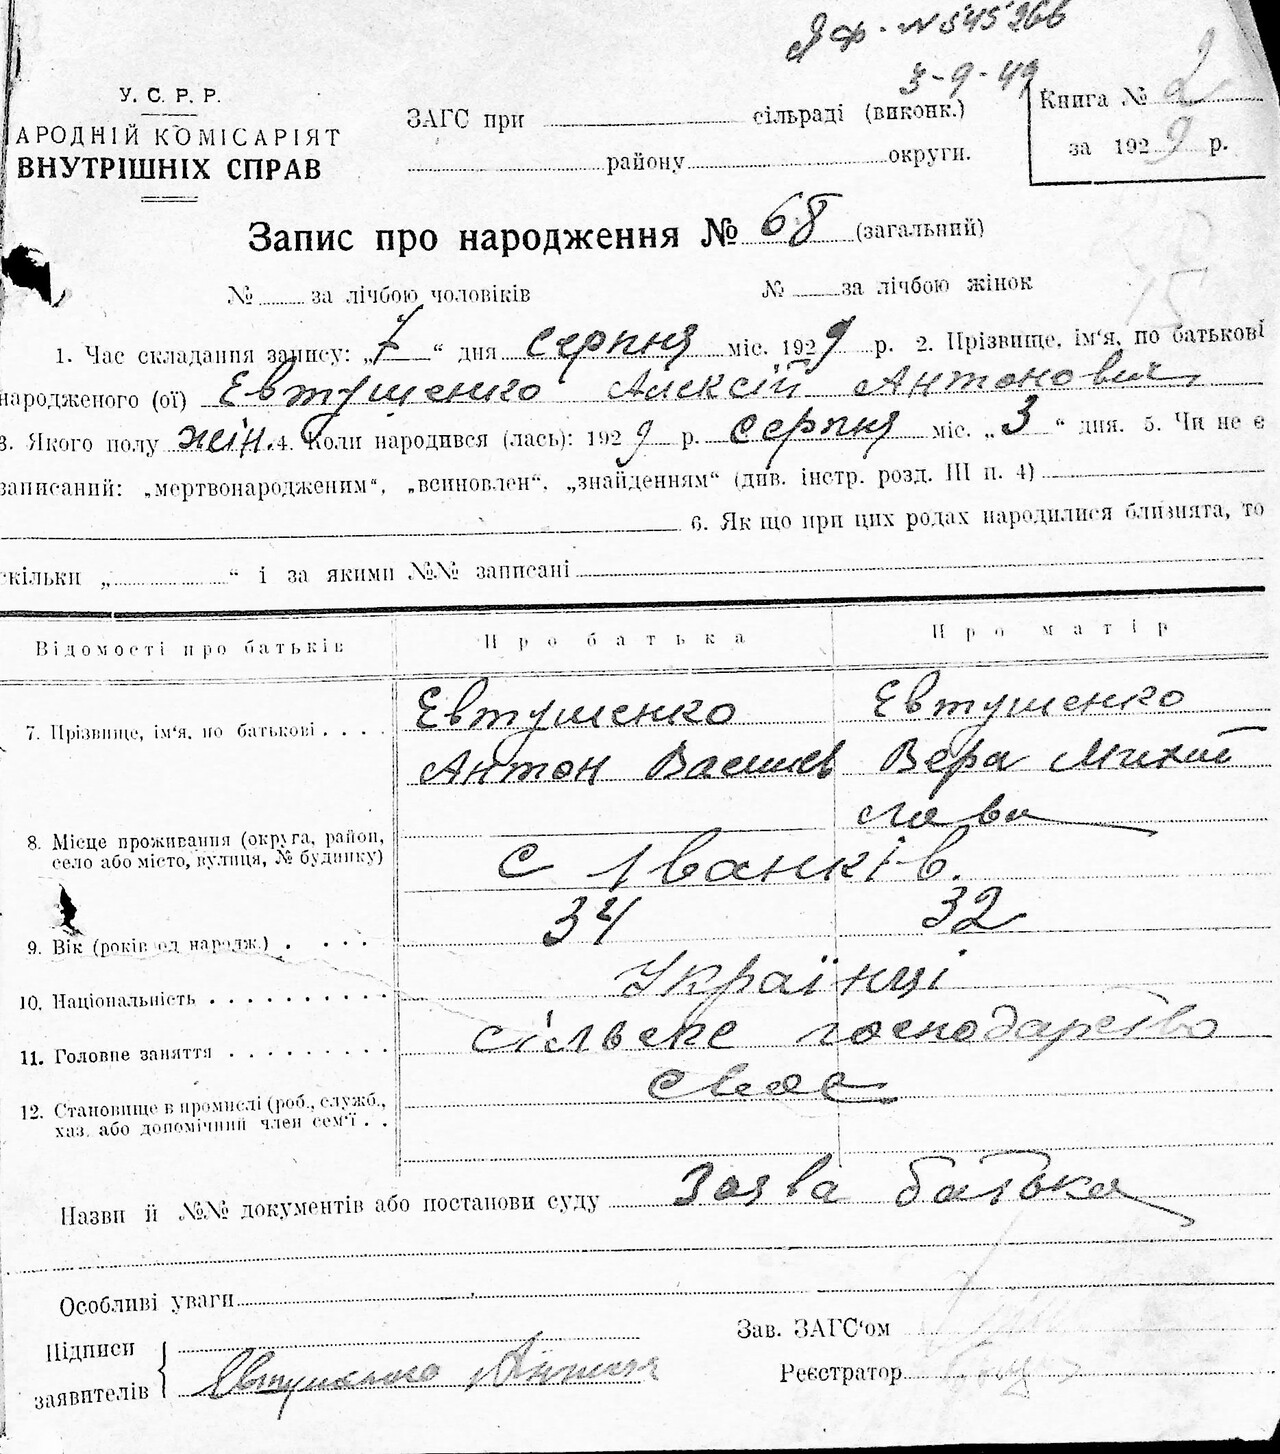 ЯФ - № 545266
3-9-49
У. С. Р. Р.
АРОДНІЙ КОМІСАРІЯТ
ВНУТРІШНІХ СПРАВ
ЗАГС при сільраді (виконк.)
району округи.
Книга № 2
за 1929 р.
Запис про народження № 68 (загальний)
№ за лічбою чоловіків № за лічбою жінок
15
1. Час складання запису: „7“ дня серпня міс. 1929 р. 2. Прізвище, ім‘я, по батькові
народженого (ої) Евтушенко Алексій Антонович
3. Якого полу жін. 4. Коли народився (лась): 1929 р. серпня міс. „3“ дня. 5. Чи не є
записаний: „мертвонародженим“, „всиновлен“, „знайденням“ (див. інстр. розд. III п. 4)
6. Як що при цих родах народилися близнята, то
скільки „ “ і за якими №№ записані
Відомості про батьків Про батька Про матір
7. Прізвище, ім‘я, по батькові . . . . Евтушенко Евтушенко
Антон Васильев Вера Михай
лова
8. Місце проживання (округа, район,
село або місто, вулиця, № будинку) с Іванків.
9. Вік (років од народж.) . . . . 34 32
10. Національність . . . . . . . . . . Українці
11. Головне заняття . . . . . . . . . сільске господарство
12. Становище в промислі (роб., служб.,
хаз. або допомічний член сем‘ї . .
Назви й №№ документів або постанови суду Заява батька
Особливі уваги
Підписи
заявителів Евтушенко Антон
Зав. ЗАГС‘ом
Реєстратор